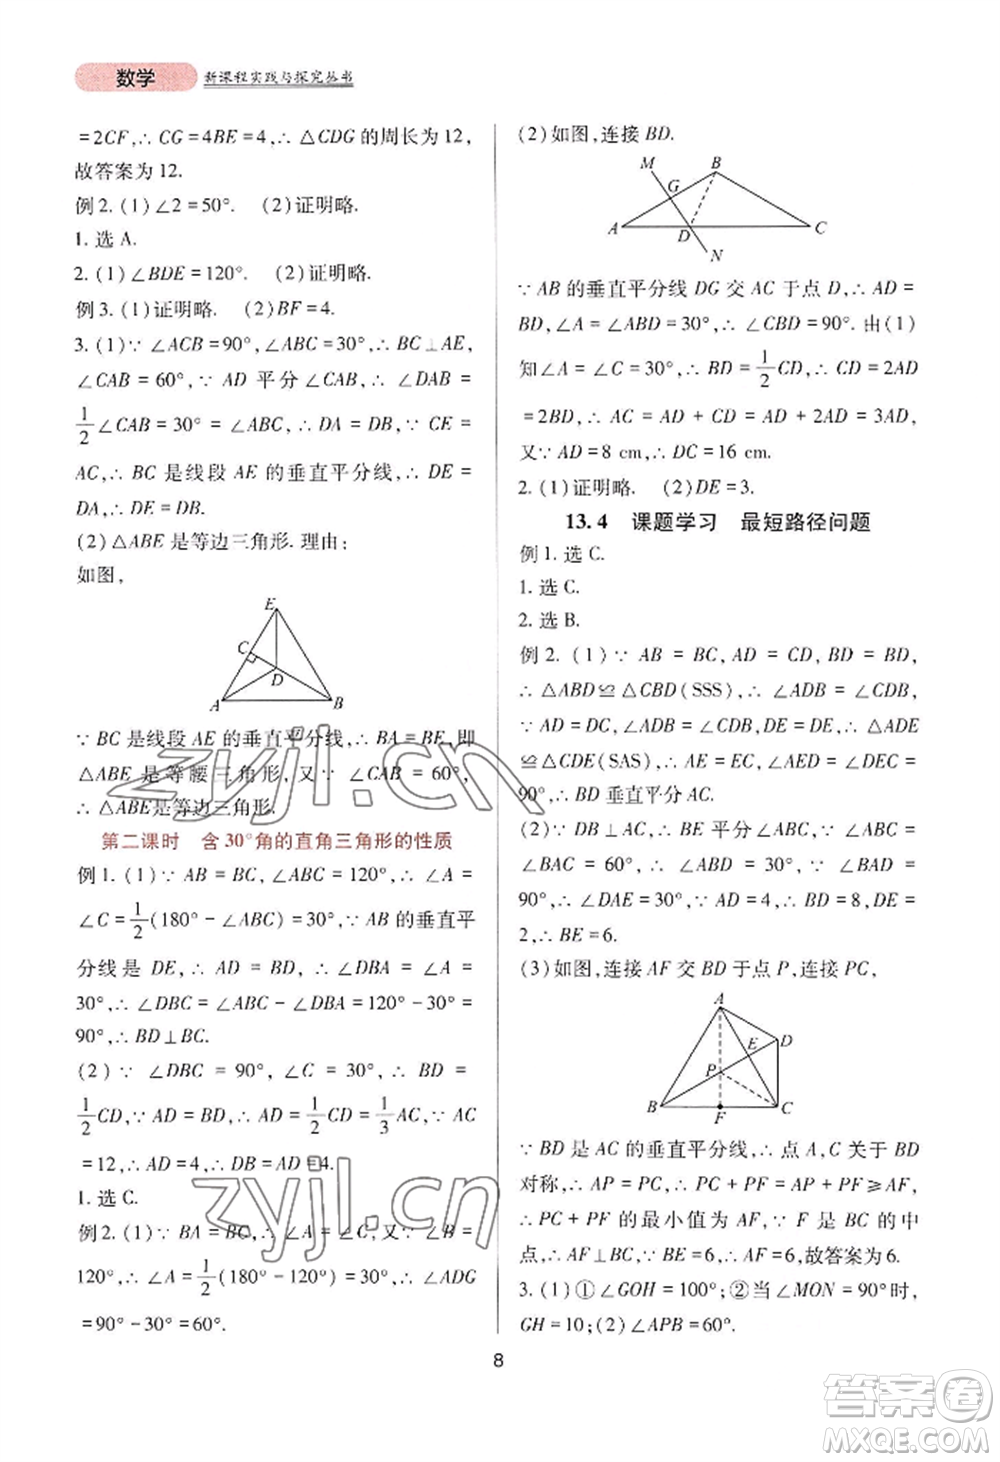 数学 新课程实践与探究丛书
=2CF,∴ CG=4BE=4,∴ △CDG 的周长为 12,
故答案为 12.
例 2. (1)∠2=50°. (2)证明略.
1. 选 A.
2. (1)∠BDE=120°. (2)证明略.
例 3. (1)证明略. (2)BF=4.
3. (1)∵ ∠ACB=90°,∠ABC=30°,∴ BC⊥AE,
∠CAB=60°,∵ AD 平分∠CAB,∴ ∠DAB =
1/2∠CAB=30°=∠ABC,∴ DA=DB,∵ CE =
AC,∴ BC 是线段 AE 的垂直平分线,∴ DE =
DA,∴ DE=DB.
(2)△ABE 是等边三角形. 理由:
如图,
E
C
D
A
B
∵ BC 是线段 AE 的垂直平分线,∴ BA=BE,即
△ABE 是等腰三角形,又∵ ∠CAB = 60°,
∴ △ABE 是等边三角形.
第二课时 含 30°角的直角三角形的性质
例 1. (1)∵ AB=BC,∠ABC=120°,∴ ∠A =
∠C=1/2(180°-∠ABC)=30°,∵ AB 的垂直平
分线是 DE,∴ AD=BD,∴ ∠DBA=∠A=
30°,∴ ∠DBC=∠ABC-∠DBA=120°-30°=
90°,∴ BD⊥BC.
(2) ∵ ∠DBC = 90°,∠C = 30°,∴ BD =
1/2CD,∵ AD=BD,∴ AD=1/2CD=1/3AC,∵ AC
=12,∴ AD=4,∴ DB=AD=4.
1. 选 C.
例 2. (1)∵ BA=BC,∴ ∠A=∠C,∵ ∠B=
120°,∴ ∠A=1/2(180°-120°)=30°,∴ ∠ADG
=90°-30°=60°.
(2)如图,连接 BD.
M
B
G
A
D
C
N
∵ AB 的垂直平分线 DG 交 AC 于点 D,∴ AD=
BD,∠A=∠ABD=30°,∴ ∠CBD=90°. 由(1)
知∠A=∠C=30°,∴ BD=1/2CD,∴ CD=2AD
=2BD,∴ AC=AD+CD=AD+2AD=3AD,
又∵ AD=8 cm,∴ DC=16 cm.
2. (1)证明略. (2)DE=3.
13.4 课题学习 最短路径问题
例 1. 选 C.
1. 选 C.
2. 选 B.
例 2. (1)∵ AB=BC,AD=CD,BD=BD,
∴ △ABD≌△CBD(SSS),∴ ∠ADB=∠CDB,
∵ AD=DC,∠ADB=∠CDB,DE=DE,∴ △ADE
≌△CDE(SAS),∴ AE=EC,∠AED=∠CED=
90°,∴ BD 垂直平分 AC.
(2)∵ DB⊥AC,∴ BE 平分∠ABC,∴ ∠ABE
=∠CBE=1/2∠ABC=30°,∵ ∠BAD =
90°,∴ ∠DAE=30°,∵ AD=4,∴ BD=8,DE=
2,∴ BE=6.
(3)如图,连接 AF 交 BD 于点 P,连接 PC,
A
D
E
P
B
F
C
∵ BD 是 AC 的垂直平分线,∴ 点 A,C 关于 BD
对称,∴ AP=PC,∴ PC+PF=AP+PF≥AF,
∴ PC+PF 的最小值为 AF,∵ F 是 BC 的中
点,∴ AF⊥BC,∵ BE=6,∴ AF=6,故答案为 6.
3. (1)①∠GOH=100°;②当∠MON=90°时,
GH=10;(2)∠APB=60°.
8
zyjl.cn
zyjl.cn
答案圈
MXQE.COM